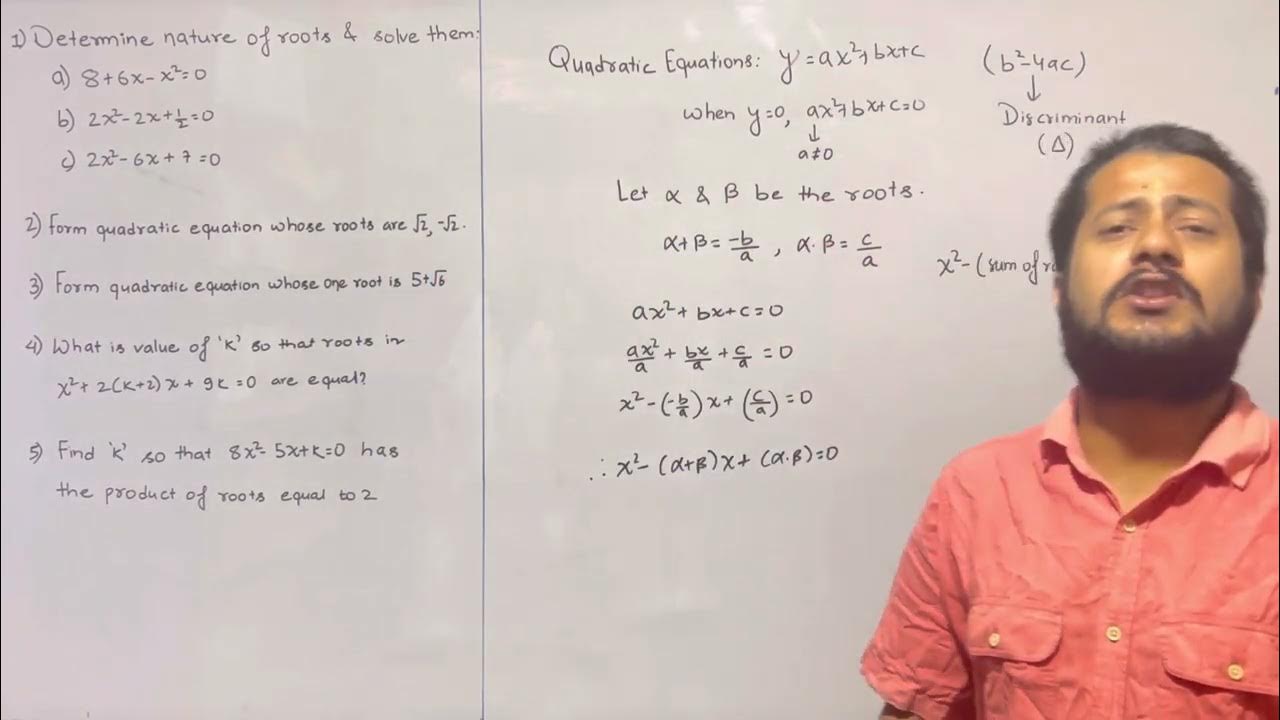 1) Determine nature of roots & solve them:
a) 8+6x-x²=0
b) 2x²-2x+1/2=0
c) 2x²-6x+7=0
2) Form quadratic equation whose roots are √2, -√2.
3) Form quadratic equation whose one root is 5+√6
4) What is value of 'k' so that roots in
x²+2(k+2)x+9k=0 are equal?
5) Find 'k' so that 8x²-5x+k=0 has
the product of roots equal to 2
Quadratic Equations: y=ax²+bx+c
when y=0, ax²+bx+c=0
↓
a≠0
Let α & β be the roots.
α+β=-b/a, α.β=c/a
ax²+bx+c=0
ax²/a+bx/a+c/a=0
x²-(-b/a)x+(c/a)=0
∴ x²-(α+β)x+(α.β)=0
(b²-4ac)
↓
Discriminant
(Δ)
x²-(sum of